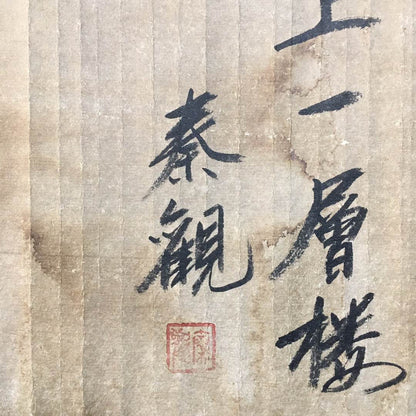 上一層楼
秦觀